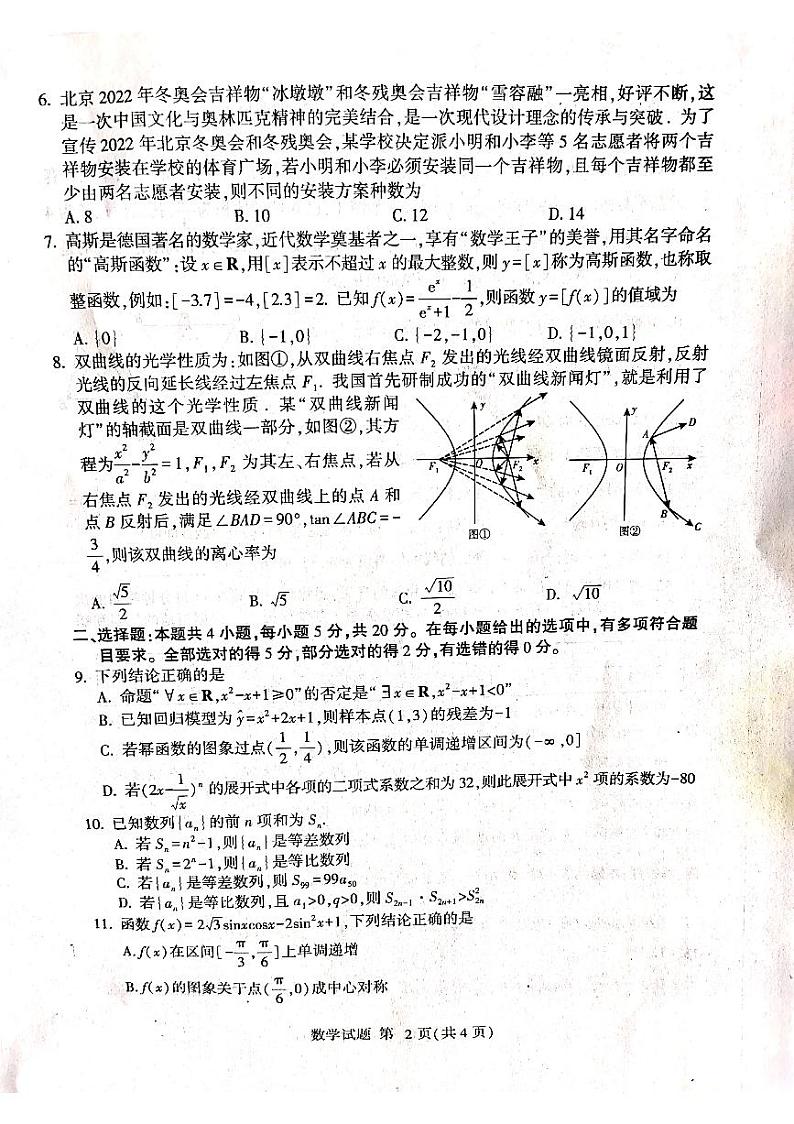 6. 北京 2022 年冬奥会吉祥物“冰墩墩”和冬残奥会吉祥物“雪容融”一亮相,好评不断,这
是一次中国文化与奥林匹克精神的完美结合,是一次现代设计理念的传承与突破. 为了
宣传 2022 年北京冬奥会和冬残奥会,某学校决定派小明和小李等 5 名志愿者将两个吉
祥物安装在学校的体育广场,若小明和小李必须安装同一个吉祥物,且每个吉祥物都至
少由两名志愿者安装,则不同的安装方案种数为
A. 8 B. 10 C. 12 D. 14
7. 高斯是德国著名的数学家,近代数学奠基者之一,享有“数学王子”的美誉,用其名字命名
的“高斯函数”:设 x∈R,用[x]表示不超过 x 的最大整数,则 y=[x]称为高斯函数,也称取
整函数,例如:[-3.7]=-4,[2.3]=2. 已知 f(x)=e^x/(e^x+1)-1/2,则函数 y=[f(x)]的值域为
A. {0} B. {-1,0} C. {-2,-1,0} D. {-1,0,1}
8. 双曲线的光学性质为:如图①,从双曲线右焦点 F₂ 发出的光线经双曲线镜面反射,反射
光线的反向延长线经过左焦点 F₁. 我国首先研制成功的“双曲线新闻灯”,就是利用了
双曲线的这个光学性质. 某“双曲线新闻
灯”的轴截面是双曲线一部分,如图②,其方
程为x²/a²-y²/b²=1,F₁,F₂ 为其左、右焦点,若从
右焦点 F₂ 发出的光线经双曲线上的点 A 和
点 B 反射后,满足∠BAD=90°,tan∠ABC=-
3/4,则该双曲线的离心率为
y
F₁ O F₂ x
图①
y
A D
F₁ O F₂ x
B C
图②
A. √5/2 B. √5 C. √10/2 D. √10
二、选择题:本题共 4 小题,每小题 5 分,共 20 分。在每小题给出的选项中,有多项符合题
目要求。全部选对的得 5 分,部分选对的得 2 分,有选错的得 0 分。
9. 下列结论正确的是
A. 命题“∀x∈R,x²-x+1≥0”的否定是“∃x∈R,x²-x+1<0”
B. 已知回归模型为 ŷ=x²+2x+1,则样本点(1,3)的残差为-1
C. 若幂函数的图象过点(1/2,1/4),则该函数的单调递增区间为(-∞,0]
D. 若(2x-1/√x)ⁿ 的展开式中各项的二项式系数之和为 32,则此展开式中 x² 项的系数为-80
10. 已知数列{aₙ}的前 n 项和为 Sₙ.
A. 若 Sₙ=n²-1,则{aₙ}是等差数列
B. 若 Sₙ=2ⁿ-1,则{aₙ}是等比数列
C. 若{aₙ}是等差数列,则 S₉₉=99a₅₀
D. 若{aₙ}是等比数列,且 a₁>0,q>0,则 S₂ₙ₋₁·S₂ₙ₊₁>S₂ₙ²
11. 函数 f(x)=2√3sinxcosx-2sin²x+1,下列结论正确的是
A.f(x)在区间[-π/3,π/6]上单调递增
B.f(x)的图象关于点(π/6,0)成中心对称
数学试题 第 2 页(共 4 页)